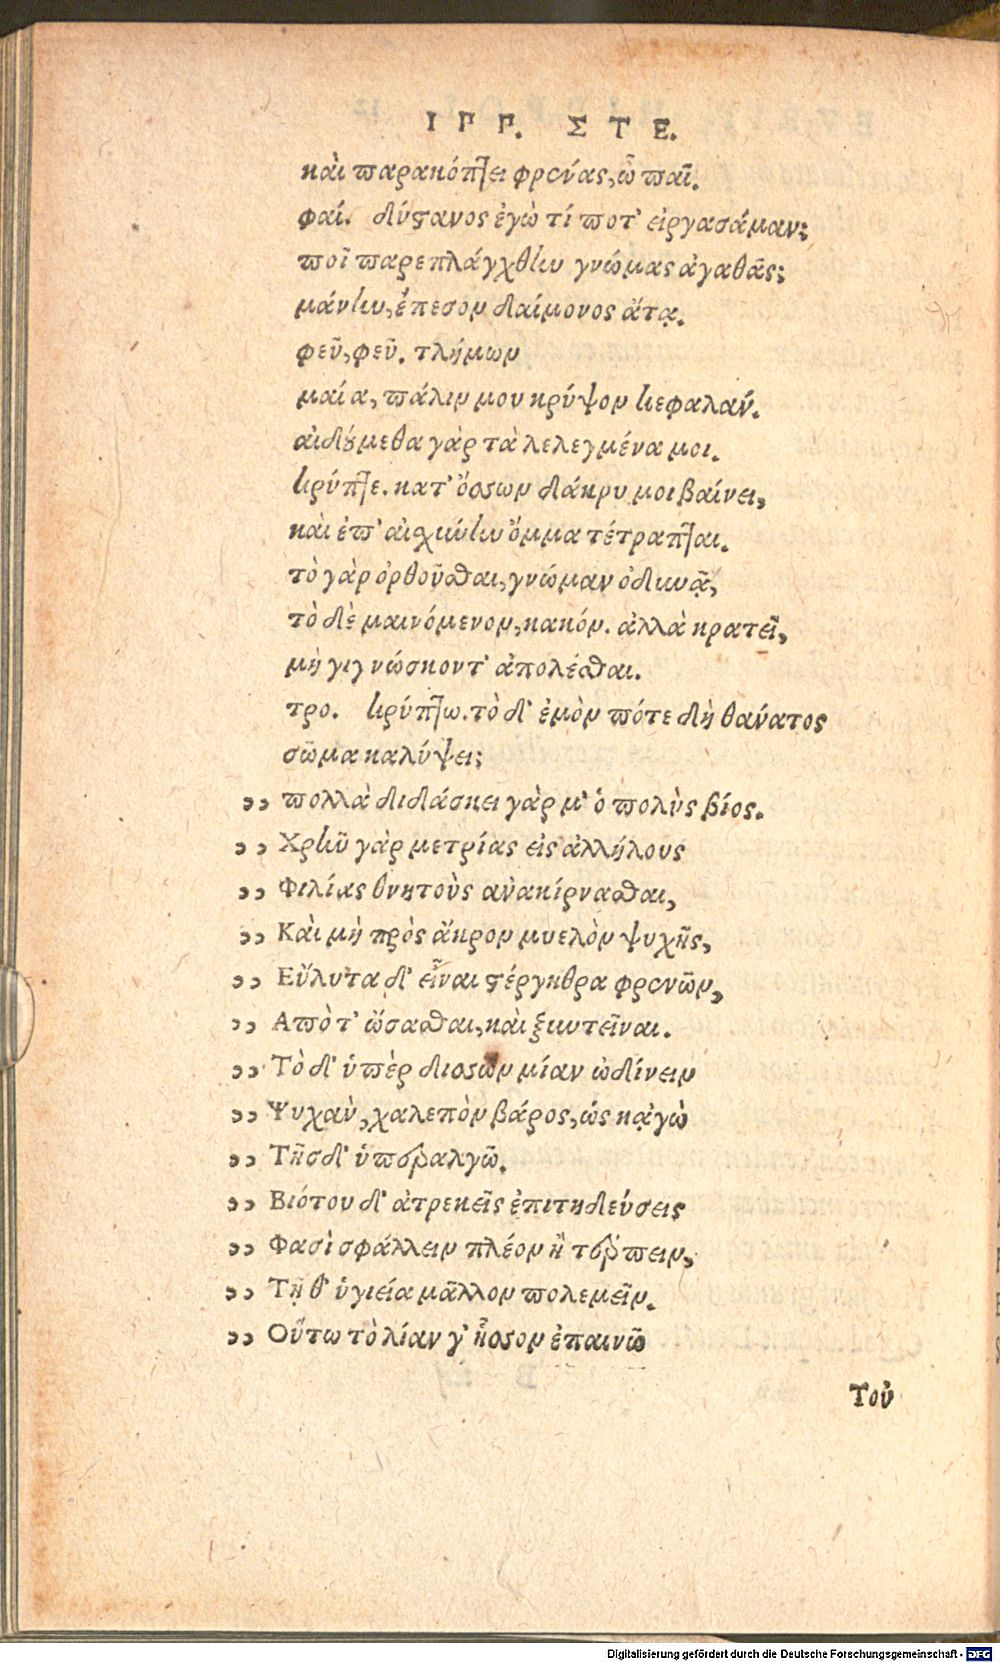 ΙΠΠ. ΣΤΕ.
καὶ παρακόπτει φρένας, ὦ παῖ.
φαί. δύστανος ἐγὼ τί ποτ' εἰργασάμαν;
ποῖ παρεπλάγχθην γνώμας ἀγαθᾶς;
μάνην, ἔπεσον δαίμονος ἄτᾳ.
φεῦ, φεῦ. τλήμων
μαία, πάλιν μου κρύψον κεφαλάν.
αἰδούμεθα γὰρ τὰ λελεγμένα μοι.
κρύπτε. κατ' ὄσσων δάκρυ μοι βαίνει,
καὶ ἐπ' αἰσχύνην ὄμμα τέτραπται.
τὸ γὰρ ὀρθοῦσθαι, γνώμαν ὀδυνᾷ,
τὸ δὲ μαινόμενον, κακόν. ἀλλὰ κρατεῖ,
μὴ γιγνώσκοντ' ἀπολέσθαι.
τρο. κρύπτω. τὸ δ' ἐμὸν πότε δὴ θάνατος
σῶμα καλύψει;
,, πολλὰ διδάσκει γάρ μ' ὁ πολὺς βίος.
,, Χρῆν γὰρ μετρίας εἰς ἀλλήλους
,, Φιλίας θνητοὺς ἀνακίρνασθαι,
,, Καὶ μὴ πρὸς ἄκρον μυελὸν ψυχῆς,
,, Εὔλυτα δ' εἶναι στέργηθρα φρενῶν,
,, Ἀπό τ' ὤσασθαι, καὶ ξυντεῖναι.
,, Τὸ δ' ὑπὲρ δισσῶν μίαν ὠδίνειν
,, Ψυχὰν, χαλεπὸν βάρος, ὡς κᾀγὼ
,, Τῆσδ' ὑπεραλγῶ.
,, Βιότου δ' ἀτρεκεῖς ἐπιτηδεύσεις
,, Φασὶ σφάλλειν πλέον ἢ τέρπειν,
,, Τῇ θ' ὑγιεία μᾶλλον πολεμεῖν.
,, Οὕτω τὸ λίαν γ' ἧσσον ἐπαινῶ
Τοῦ
Digitalisierung gefördert durch die Deutsche Forschungsgemeinschaft - DFG